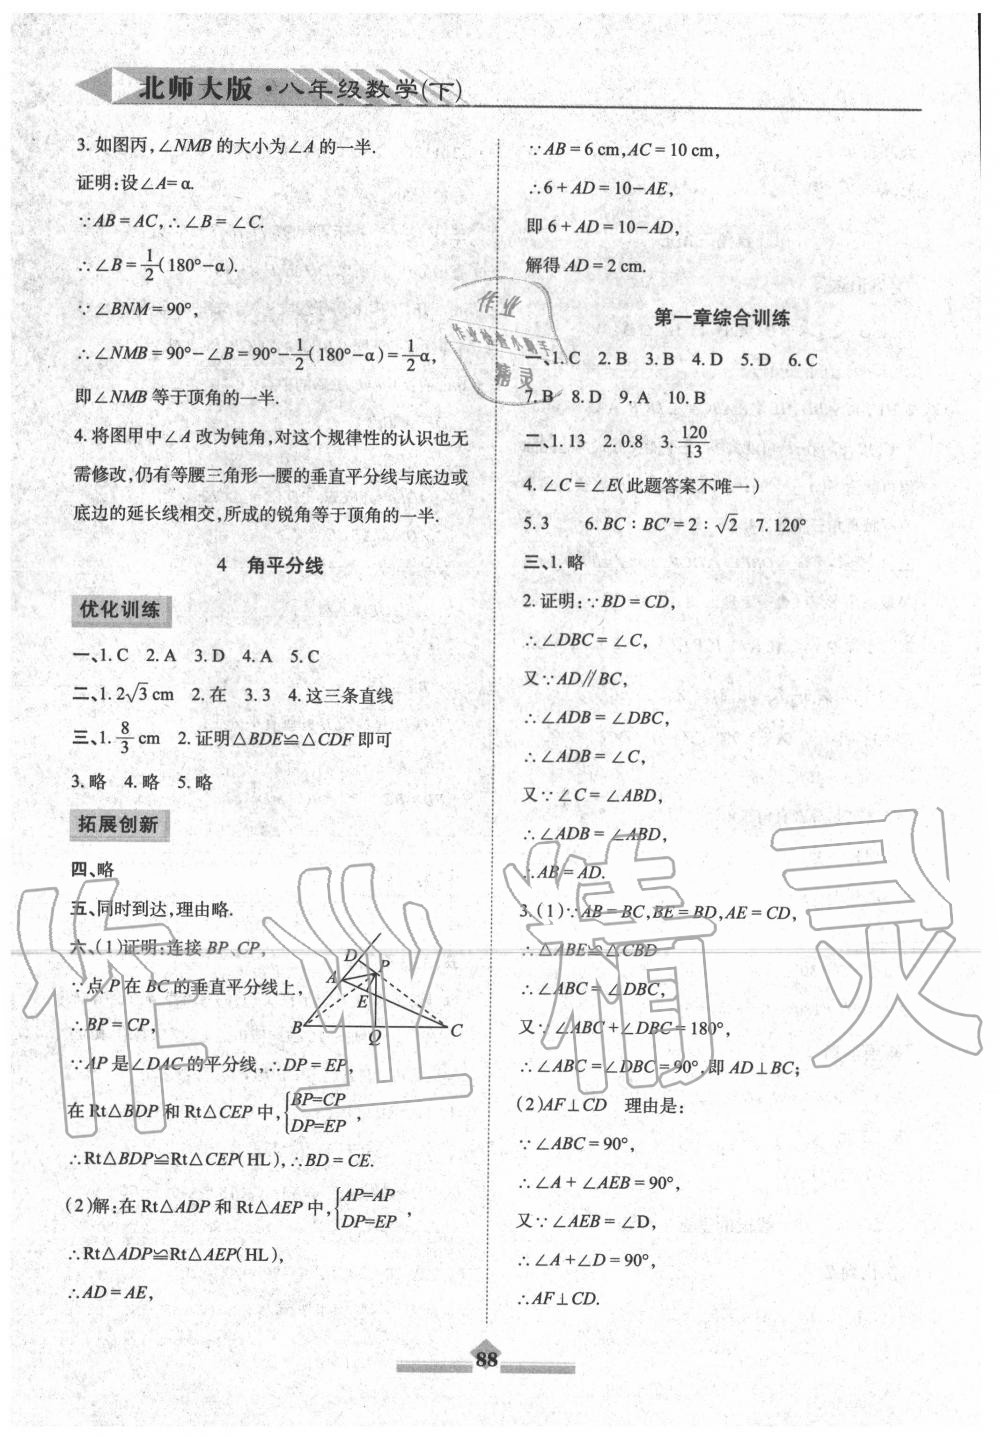 北师大版·八年级数学(下)
3.如图丙,∠NMB的大小为∠A的一半.
证明:设∠A=α.
∵AB=AC,∴∠B=∠C.
∴∠B=1/2(180°-α).
∵∠BNM=90°,
∴∠NMB=90°-∠B=90°-1/2(180°-α)=1/2α,
即∠NMB等于顶角的一半.
4.将图甲中∠A改为钝角,对这个规律性的认识也无
需修改,仍有等腰三角形一腰的垂直平分线与底边或
底边的延长线相交,所成的锐角等于顶角的一半.
4 角平分线
优化训练
一、1.C 2.A 3.D 4.A 5.C
二、1.2√3 cm 2.在 3.3 4.这三条直线
三、1.8/3 cm 2.证明△BDE≌△CDF即可
3.略 4.略 5.略
拓展创新
四、略
五、同时到达,理由略.
六、(1)证明:连接BP、CP,
∵点P在BC的垂直平分线上,
∴BP=CP,
∵AP是∠DAC的平分线,∴DP=EP,
在Rt△BDP和Rt△CEP中,{BP=CP
DP=EP,
∴Rt△BDP≌Rt△CEP(HL),∴BD=CE.
(2)解:在Rt△ADP和Rt△AEP中,{AP=AP
DP=EP,
∴Rt△ADP≌Rt△AEP(HL),
∴AD=AE,
D
P
A
E
B
Q
C
∵AB=6 cm,AC=10 cm,
∴6+AD=10-AE,
即6+AD=10-AD,
解得AD=2 cm.
第一章综合训练
一、1.C 2.B 3.B 4.D 5.D 6.C
7.B 8.D 9.A 10.B
二、1.13 2.0.8 3.120/13
4.∠C=∠E(此题答案不唯一)
5.3 6.BC∶BC′=2∶√2 7.120°
三、1.略
2.证明:∵BD=CD,
∴∠DBC=∠C,
又∵AD∥BC,
∴∠ADB=∠DBC,
∴∠ADB=∠C,
又∵∠C=∠ABD,
∴∠ADB=∠ABD,
∴AB=AD.
3.(1)∵AB=BC,BE=BD,AE=CD,
∴△ABE≌△CBD
∴∠ABC=∠DBC,
又∵∠ABC+∠DBC=180°,
∴∠ABC=∠DBC=90°,即AD⊥BC;
(2)AF⊥CD 理由是:
∵∠ABC=90°,
∴∠A+∠AEB=90°,
又∵∠AEB=∠D,
∴∠A+∠D=90°,
∴AF⊥CD.
88
作业
作业检查小助手
精灵
作业精灵